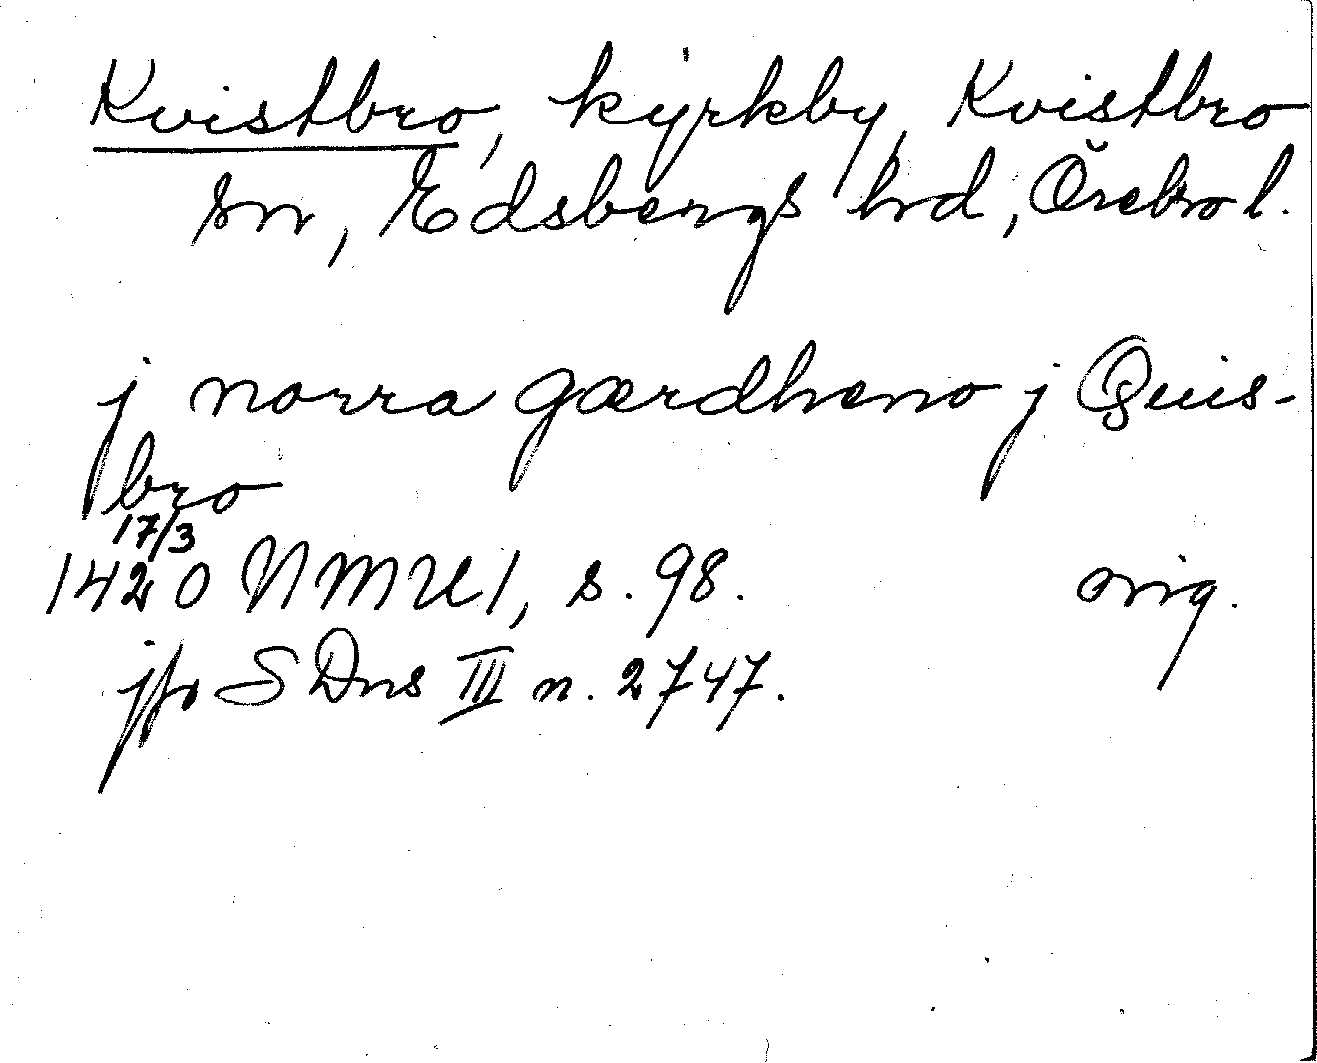 Kvistbro, kyrkby, Kvistbro
sn, Edsbergs hrd, Örebro l.
j norra gærdheno j Quis-
bro
17/3
1420 NMU 1, s. 98. orig.
jfr SDns III n. 2747.